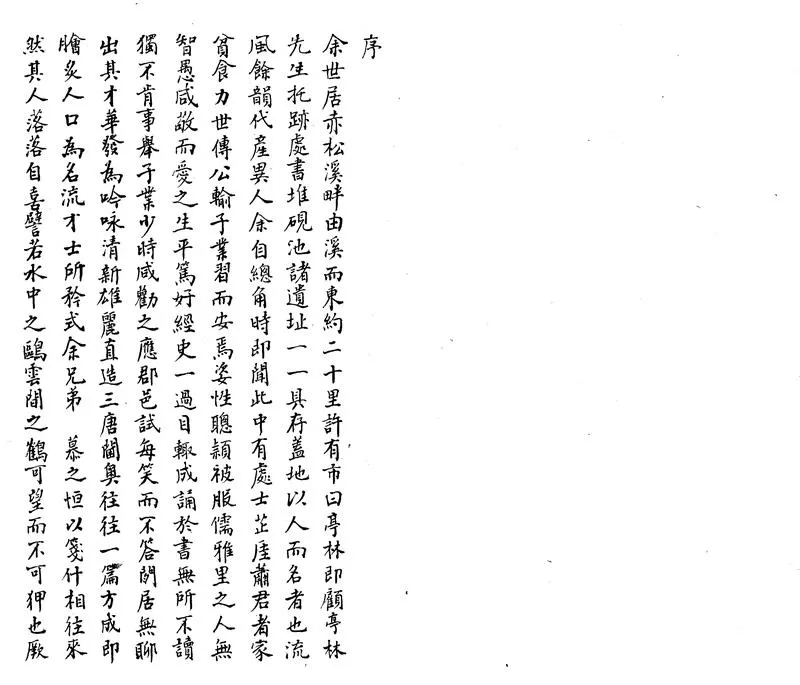 序
余世居赤松溪畔由溪而東約二十里許有市曰亭林即顧亭林
先生托跡處書堆硯池諸遺址一一具存蓋地以人而名者也流
風餘韻代產異人余自總角時即聞此中有處士芷厓蕭君者家
貧食力世傳公輸子業習而安焉姿性聰穎被服儒雅里之人無
智愚咸敬而愛之生平篤好經史一過目輒成誦於書無所不讀
獨不肯事舉子業少時咸勸之應郡邑試每笑而不答閒居無聊
出其才華發為吟咏清新雄麗直造三唐閫奧往往一篇方成即
膾炙人口為名流才士所矜式余兄弟 慕之恒以箋什相往來
然其人落落自喜譬若水中之鷗雲間之鶴可望而不可狎也厥